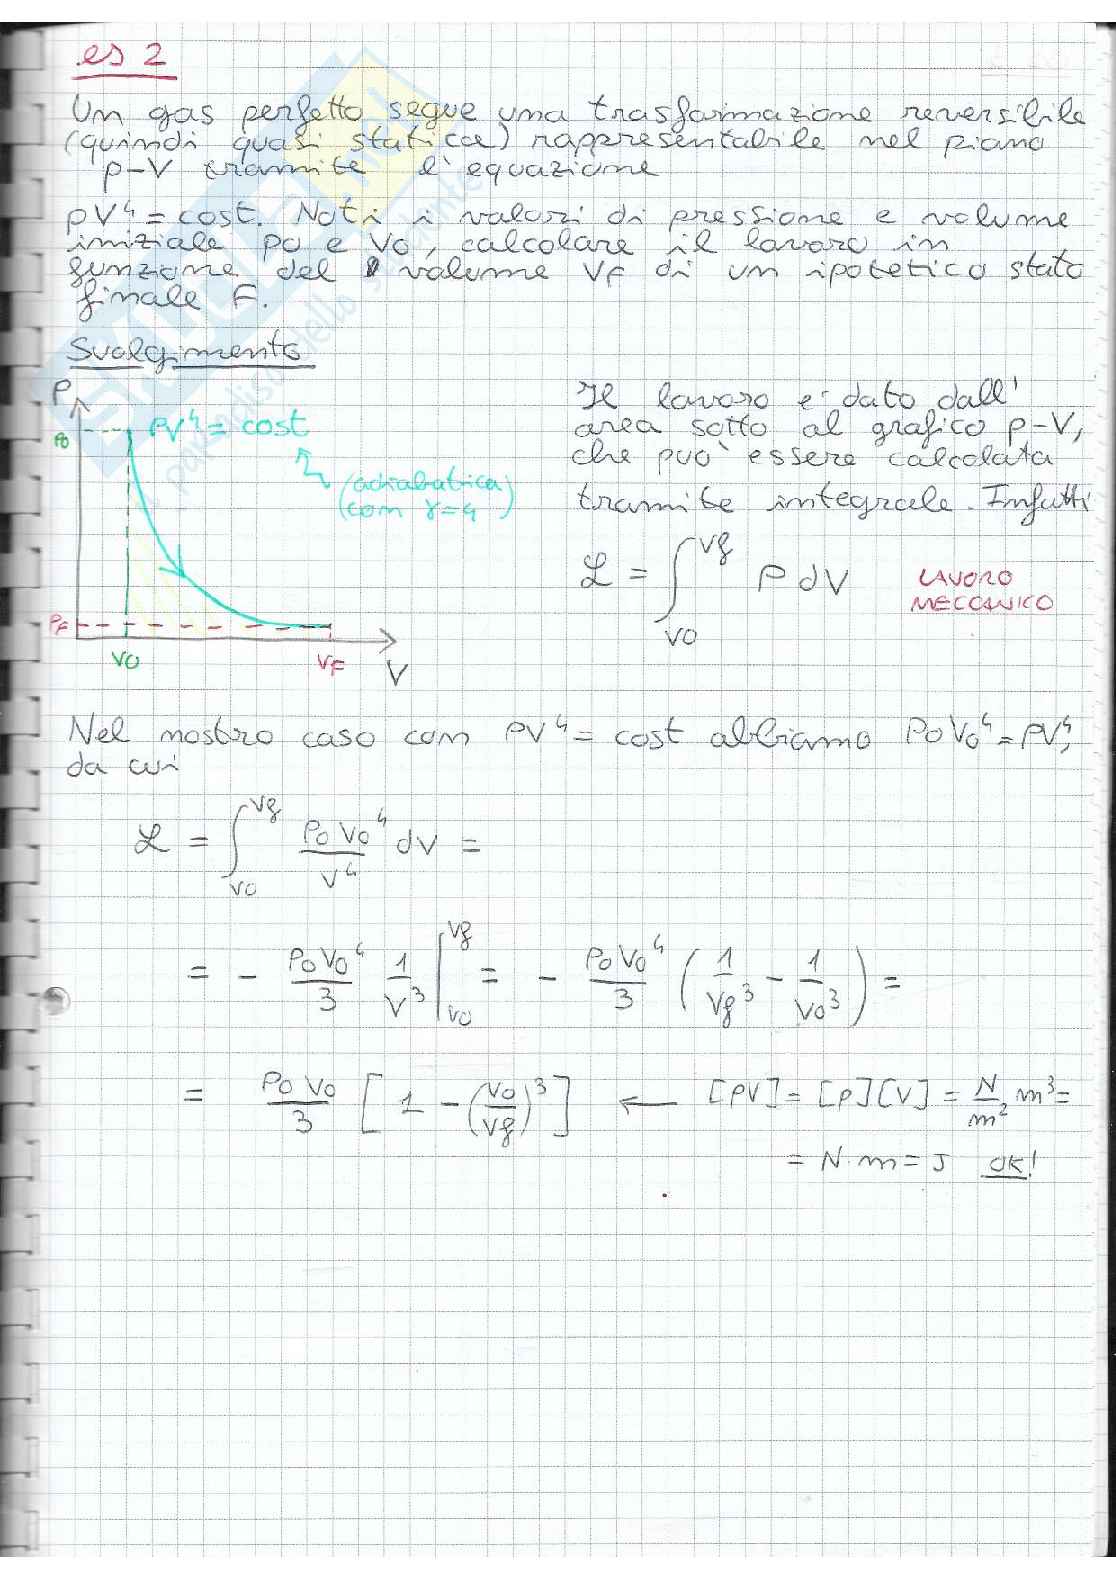 es 2
Un gas perfetto segue una trasformazione reversibile
(quindi quasi statica) rappresentabile nel piano
p-V tramite l'equazione
pV⁴ = cost. Noti i valori di pressione e volume
iniziale p0 e V0, calcolare il lavoro in
funzione del volume VF di un ipotetico stato
finale F.
Svolgimento
P
P0
PV⁴ = cost
(adiabatica
com γ=4)
PF
V0
VF
V
Il lavoro e' dato dall'
area sotto al grafico p-V,
che puo' essere calcolata
tramite integrale. Infatti
L = ∫_{V0}^{Vf} P dV
LAVORO
MECCANICO
Nel nostro caso con PV⁴ = cost abbiamo P0V0⁴ = PV⁴,
da cui
L = ∫_{V0}^{Vf} P0V0⁴/V⁴ dV =
= - P0V0⁴/3 1/V³ |_{V0}^{Vf} = - P0V0⁴/3 (1/Vf³ - 1/V0³) =
= P0V0/3 [1 - (V0/Vf)³] ← [PV] = [P][V] = N/m² m³ =
= N·m = J OK!